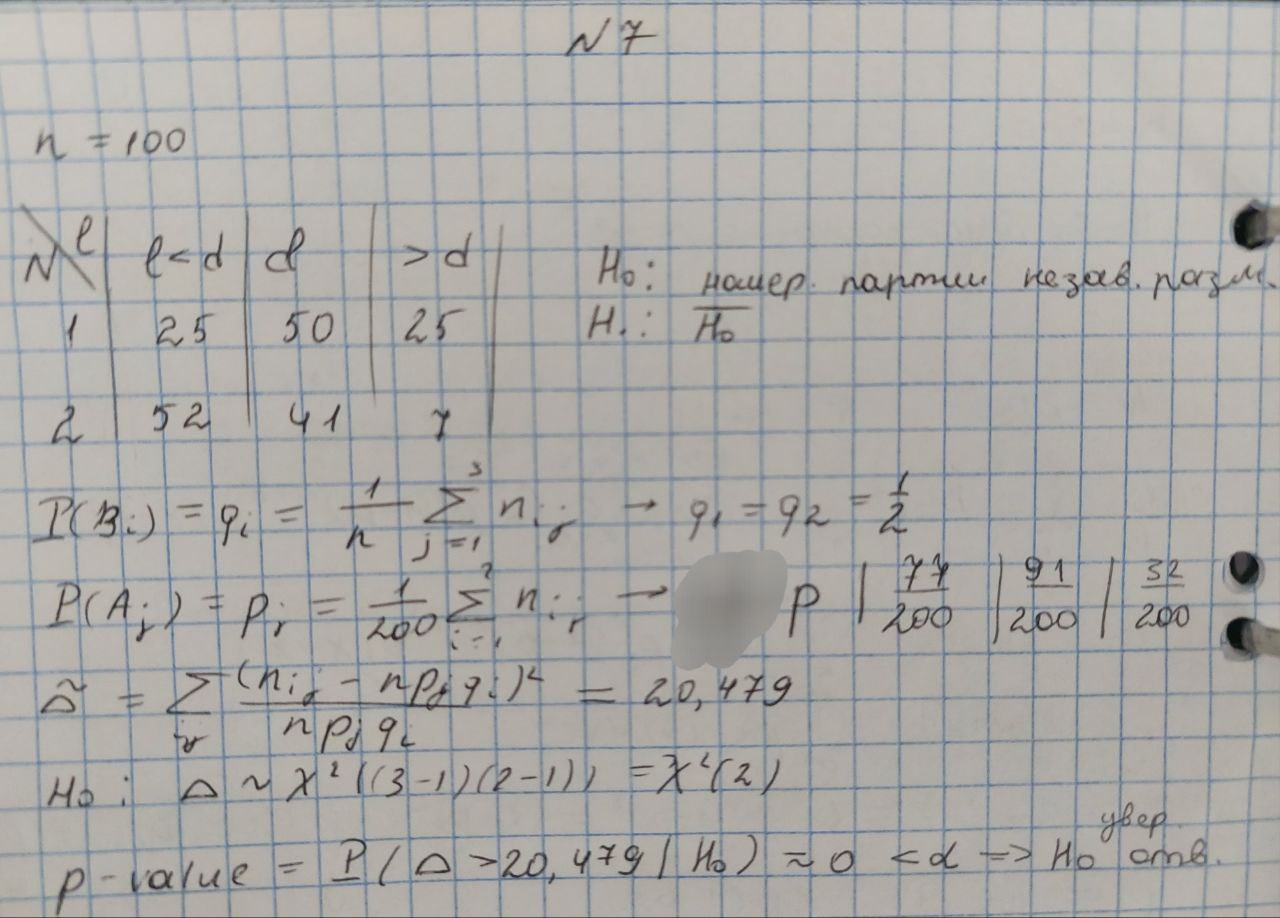 N7
n = 100
N\l | l<d | d | >d
H₀: номер. партии незав. разм.
1 | 25 | 50 | 25
H₁: H̅₀
2 | 52 | 41 | 7
P(Bᵢ) = qᵢ = 1/n Σ_{j=1}^{3} nᵢⱼ → q₁ = q₂ = 1/2
P(Aⱼ) = pⱼ = 1/200 Σ_{i=1}^{2} nᵢⱼ → p | 77/200 | 91/200 | 32/200
Δ̃ = Σ_{ij} (nᵢⱼ - npⱼqᵢ)²/(npⱼqᵢ) = 20,479
H₀: Δ ~ χ²((3-1)(2-1)) = χ²(2)
p-value = P(Δ > 20,479 | H₀) ≈ 0 < α => H₀ увер. отв.